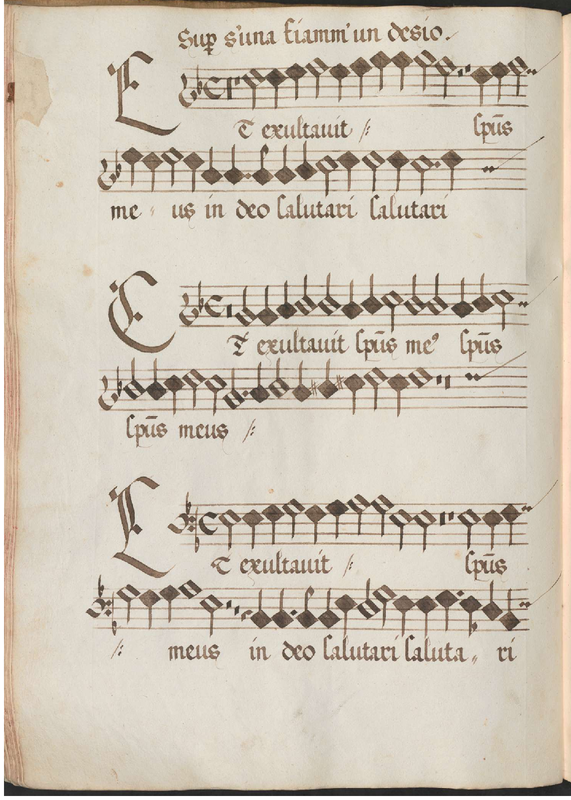 Sup s'una fiamm'un desio.
Et exultavit /: spūs
me - us in deo salutari salutari
Et exultavit spūs me⁹ spūs
spūs meus /:
Et exultavit /: spūs
/: meus in deo salutari saluta - ri